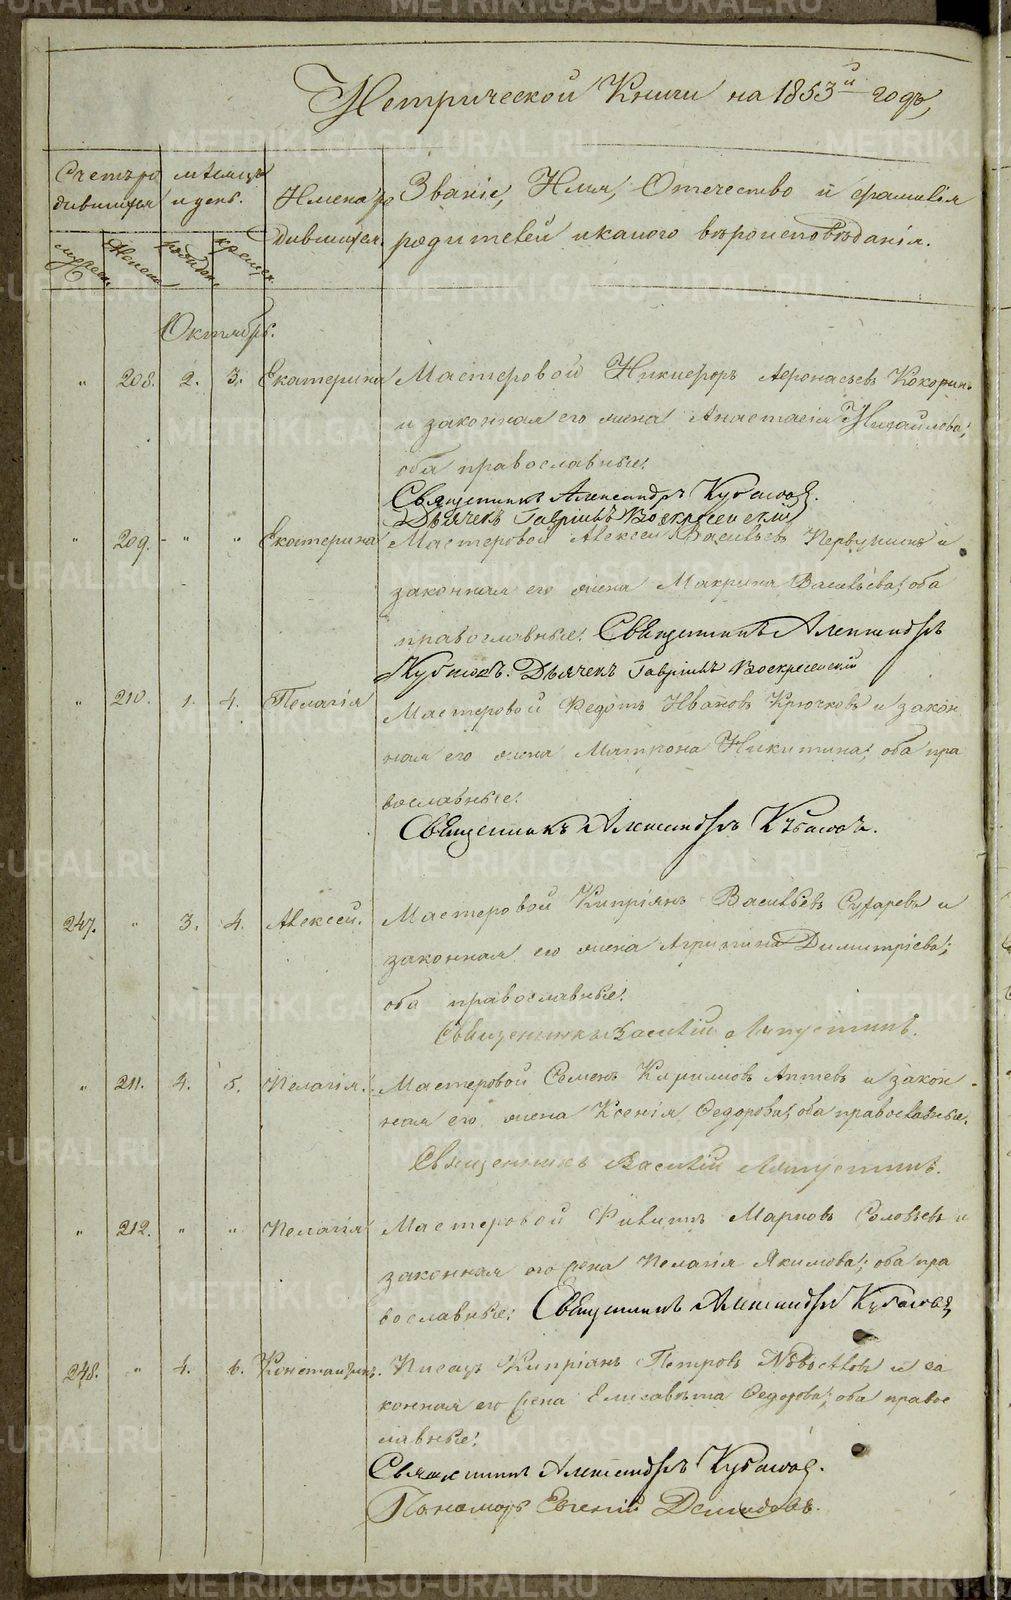 Метрической Книги на 1853й годъ,
Счетъ ро
дившихся
мѣсяцъ
и день.
Имена ро
дившихся.
Званіе, Имя, Отечество и фамилія
родителей и какого вѣроисповѣданія.
мужеска
Женска
рожден.
крещен.
Октябрь.
" 208. 2. 3. Екатерина Мастеровой Никифоръ Афонасьевъ Кокоринъ
и законная его жена Анастасія Михайлова;
оба православные.
Священникъ Александръ
Дьячекъ Гавріилъ Воскресенскій
" 209. " " Екатерина Мастеровой Алексей Васильевъ Первушинъ и
законная его жена Макрина Васильева; оба
православные. Священникъ Александръ
Дьячекъ Гавріилъ Воскресенскій
" 210. 1. 4. Пелагія Мастеровой Федотъ Ивановъ Крючковъ и закон
ная его жена Матрона Никитина; оба пра
вославные.
Священникъ Александръ
247. " 3. 4. Алексей. Мастеровой Кипріянъ Васильевъ Сухаревъ и
законная его жена Агрипина Димитріева;
оба православные.
Священникъ Василій Ляпустинъ.
" 211. 4. 5. Пелагія. Мастеровой Семенъ Аптевъ и закон
ная его жена Ксенія Федорова; оба православные.
Священникъ Василій Ляпустинъ.
" 212. " " Пелагія Мастеровой Филиппъ Марковъ Соловьевъ и
законная его жена Пелагія Якимова; оба пра
вославные. Священникъ Александръ
248. " 4. 6. Константинъ. Писецъ Кипріянъ Петровъ и за
конная его жена Елисавета Федорова; оба правос
лавные.
Священникъ Александръ
Пономарь Евгеній
METRIKI.GASO-URAL.RU